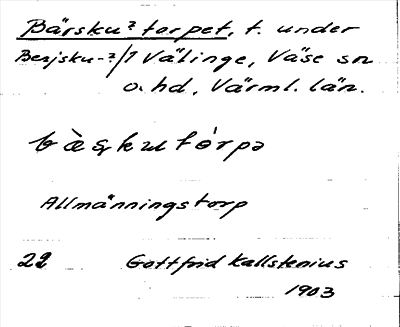 Bärsku? torpet, t. under
Bersjsku-?/1 Välinge, Väse sn
o. hd, Värml. län.
bæ̀ʂku tórpə
Allmänningstorp
22 Gottfrid Kallstenius
1903